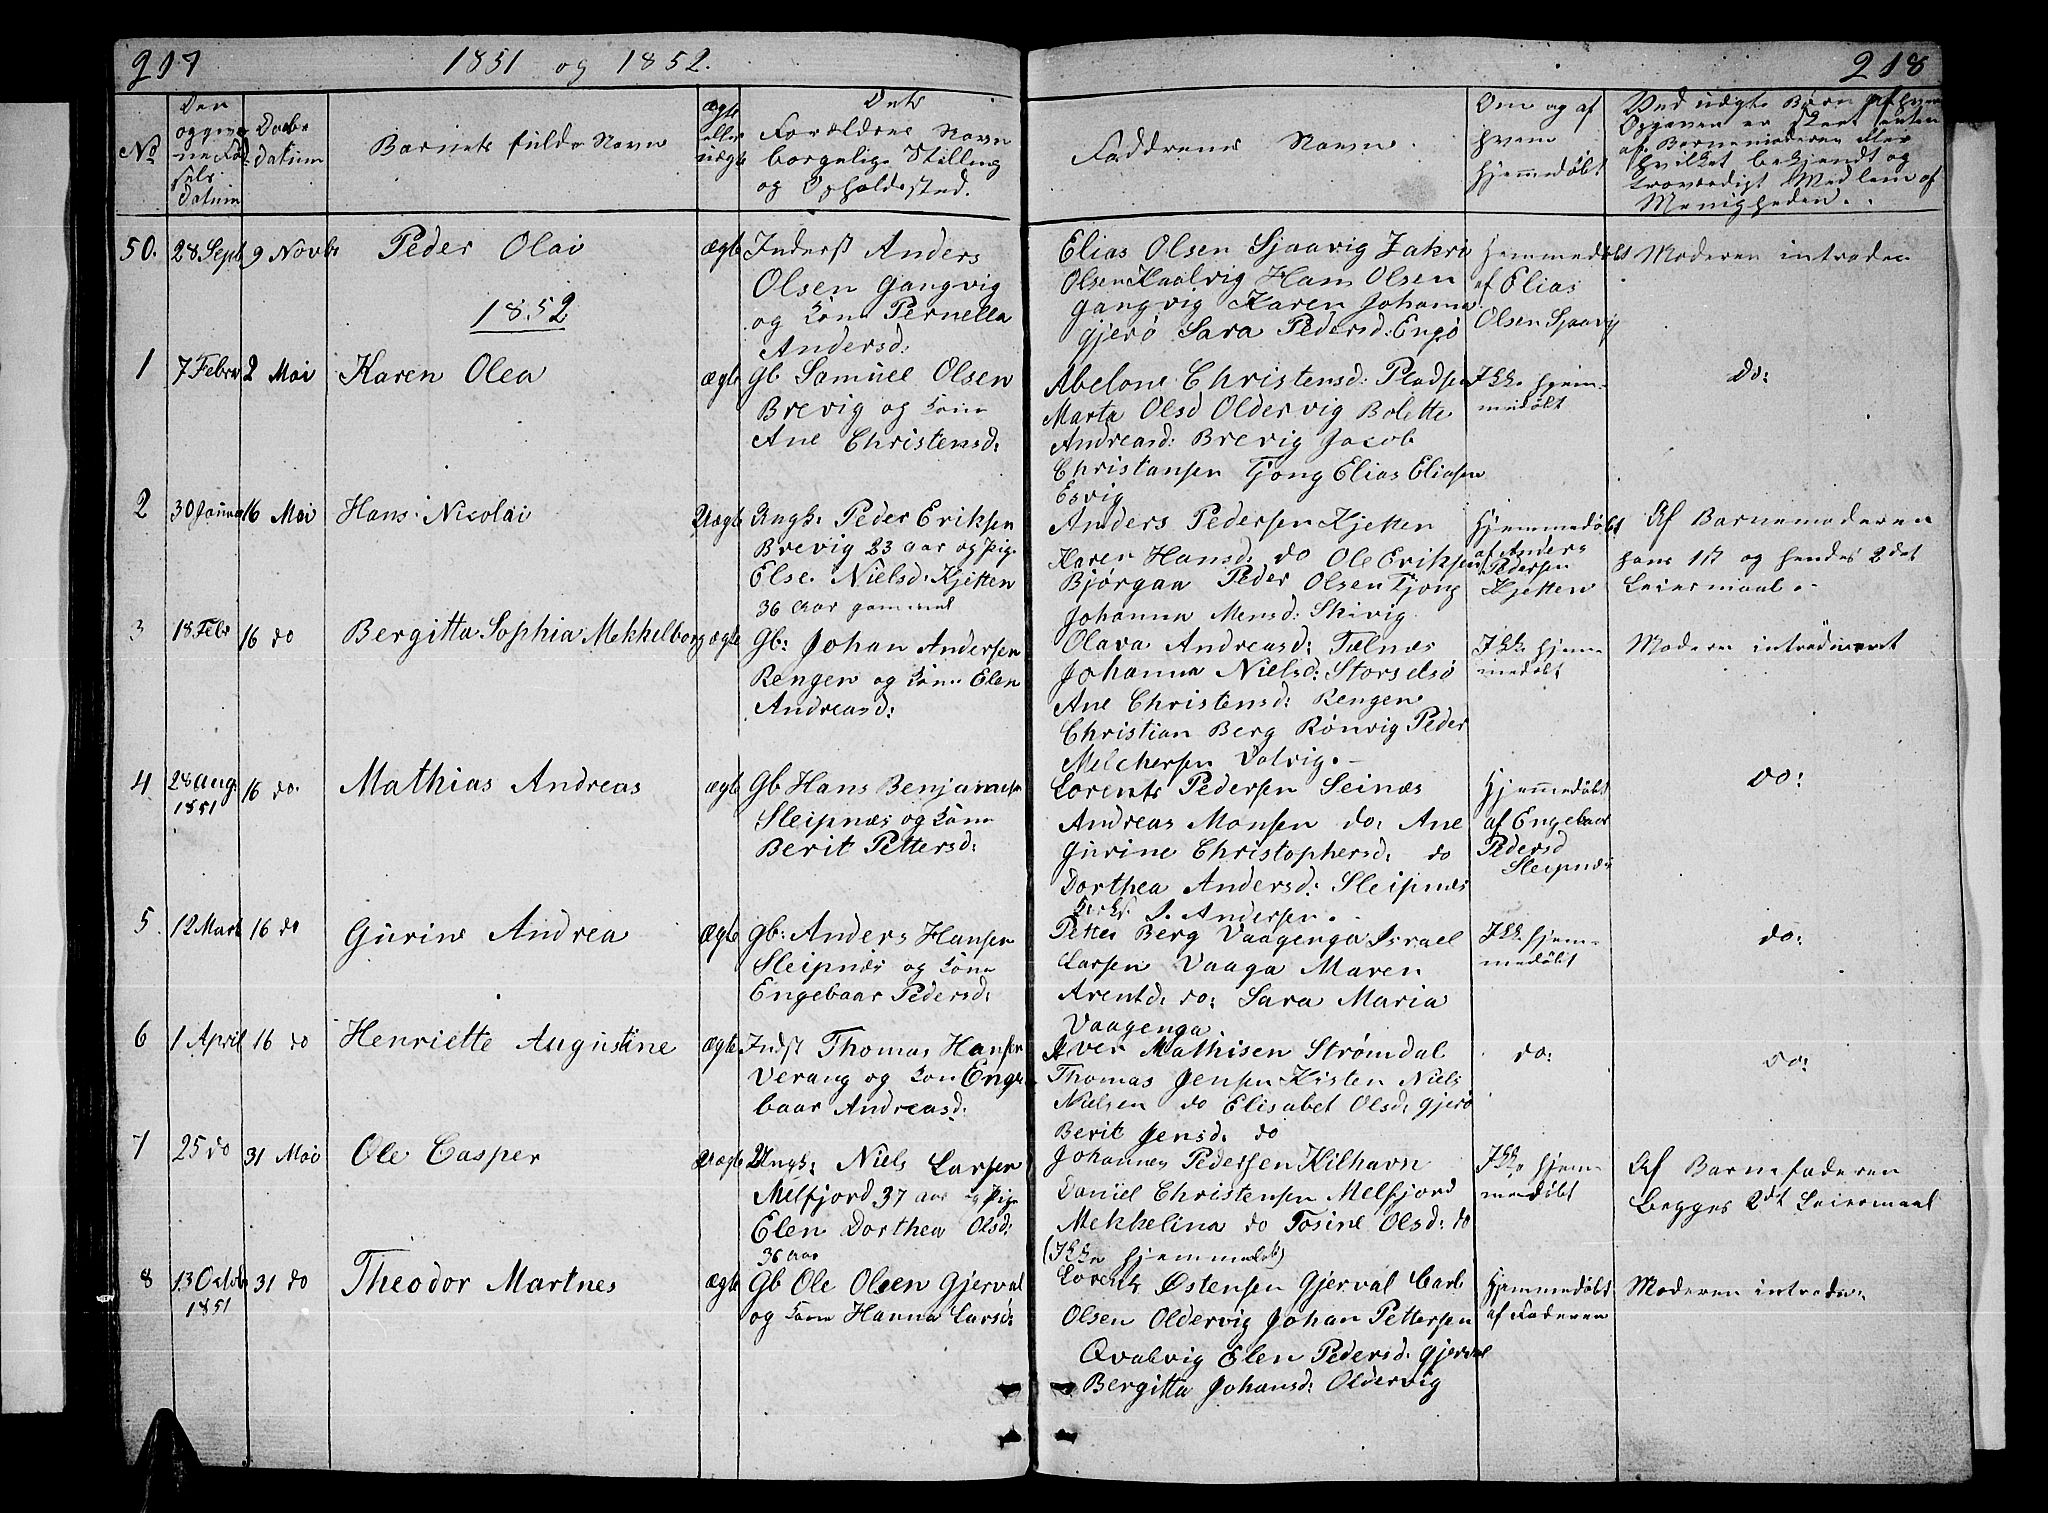 217
1851 og 1852.
No
Den
opgivne
Fød-
sels
Datum
Daabs
Datum
Barnets fulde Navn
Ægte
eller
uægte
Dets
Forældres Navn
borgelige Stilling
og Opholdssted.
50.
28 Sept
9 Novbr
Peder Olai
ægte
Inderst Anders
Olsen Gangvig
og Kone Pernella
Andersd:
1852
1
7 Febru
2 Mai
Karen Olea
ægte
Gb Samuel Olsen
Brevig og Kone
Ane Christensd:
2
30 Januar
16 Mai
Hans Nicolai
Uægte
Ungk: Peder Eriksen
Brevig 23 aar og Pig.
Else Nielsd: Kjetten
36 aar gammel
3
18 Febr
16 do
Bergitta Sophia Mekkelborg
ægte
Gb: Johan Andersen
Rengen og Kone Elen
Andreasd:
4
28 Aug.
1851
16 do.
Mathias Andreas
ægte
Gb Hans Benjamins
Sleipnæs og Kone
Berit Pettersd:
5.
12 Mart
16 do
Gurine Andrea
ægte
Gb: Anders Hansen
Sleipnæs og Kone
Engebaar Pedersd:
6
1 April
16 do
Henriette Augustine
ægte
Indst Thomas Hansen
Verang og Kone Enge
baar Andreasd:
7
25 do
31 Mai
Ole Casper
Uægte
Ungk: Niels Larsen
Melfjord 37 aar og Pige
Elen Dorthea Olsd:
36 aar
8
13 Octob
1851
31 do
Theodor Martnes
ægte
Gb Ole Olsen Gjerval
og Kone Hanna Larsd:
218
Faddernes Navn.
Om og af
hvem
hjemmedøbt
Ved uægte Børn af hvem
Opgaven er skeet enten
af Barnemoderen eller
hvilket bekjendt og
troværdigt Medlem af
Menigheden.
Elias Olsen Sjaavig Zakri
Olsen Kaalvig Hans Olsen
Gangvig Karen Johanna
Gjerø Sara Pedersd: Engø
Hjemmedøbt
af Elias
Olsen Sjaavig
Moderen introdu
Abelone Christensd: Pladsen
Marta Olsd Oldervig Bolette
Andreasd: Brevig Jacob
Christansen Tjong Elias Eliasen
Esvig
Ikke hjem-
medøbt
do:
Anders Pedersen Kjetten
Karen Hansd: do Ole Eriksen
Bjørgaa Peder Olsen Tjong
Johanna Mensd: Skivig
Hjemmedøbt
af Anders
Pedersen
Kjetten
Af Barnemoderen
hans 1st og hendes 2det
Leiermaal.
Olava Andreasd: Telnæs
Johanna Nielsd: Storselsø
Ane Christensd: Rengen
Christian Berg Rønvig Peder
Melchersen Valvig.
Ikke hjem
medøbt
Moderen introduceret
Lorents Pedersen Seinæs
Andreas Monsen do: Ane
Gurine Christophersd: do
Dorthea Andersd: Sleipnæs
J. Andersen.
Hjemmedøbt
af Engebaar
Pedersd
Sleipnæs
do:
Petter Berg Vaagenga Israel
Larsen Vaaga Maren
Arentd: do: Sara Maria
Vaagenga.
Ikke hjem-
medøbt
do:
Iver Mathisen Strømdal
Thomas Jensen Kisten Niels
Nielsen do Elisabet Olsd: Gjerø
Berit Jensd: do
do:
do:
Johannes Pedersen Kilhavn
Daniel Christensen Melfjord
Mekkelina do Tosine Olsd: do
(Ikke hjemmedøbt)
Ikke hjem
medøbt
Af Barnefaderen
Begges 2det Leiermaal
Lorents Østensen Gjerval Carl
Olsen Oldervig Johan Pettersen
Qvalvig Elen Pedersd: Gjerval
Bergitta Johansd: Oldervig
Hjemmedøbt
af Faderen
Moderen introdu: